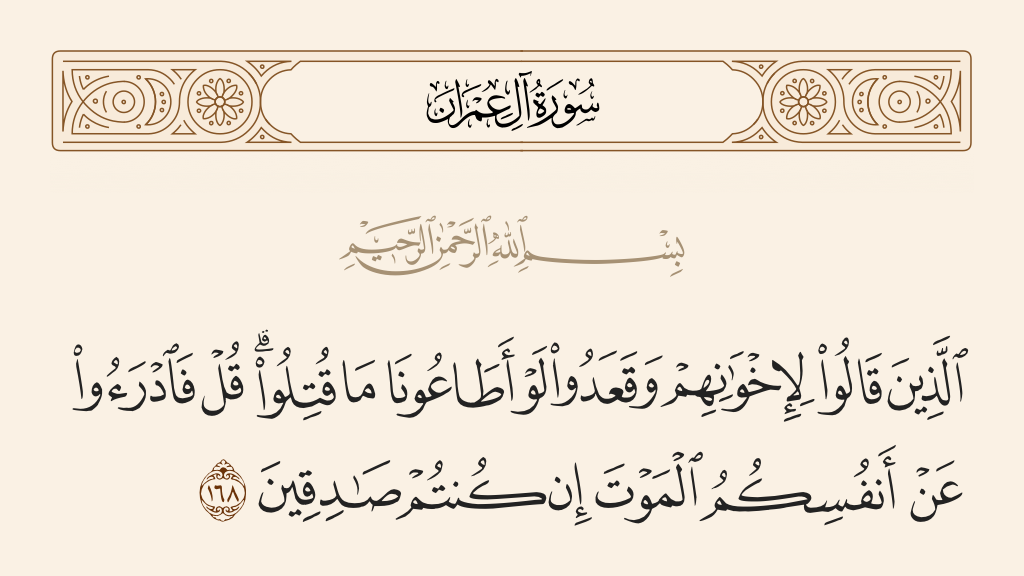 سُورَةُ آلِ عِمْرَانَ
بِسْمِ ٱللَّهِ ٱلرَّحْمَٰنِ ٱلرَّحِيمِ
ٱلَّذِينَ قَالُوا۟ لِإِخْوَٰنِهِمْ وَقَعَدُوا۟ لَوْ أَطَاعُونَا مَا قُتِلُوا۟ ۗ قُلْ فَٱدْرَءُوا۟
عَنْ أَنفُسِكُمُ ٱلْمَوْتَ إِن كُنتُمْ صَـٰدِقِينَ ١٦٨